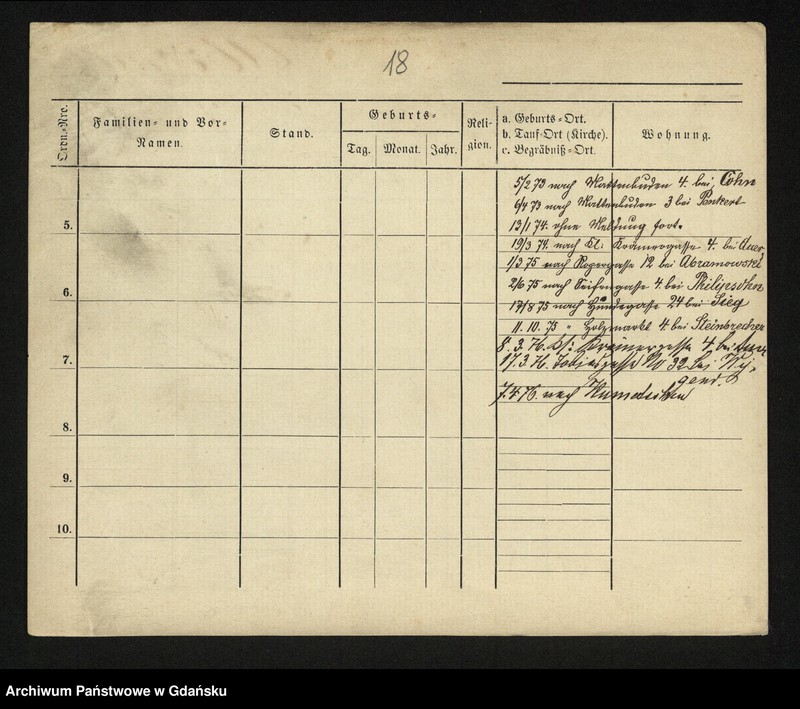 18
Ordn.-Nro.
Familien- und Vor-
Namen.
Stand.
Geburts-
Tag.
Monat.
Jahr.
Reli-
gion.
a. Geburts-Ort.
b. Tauf-Ort (Kirche).
c. Begräbniß-Ort.
Wohnung.
5/2 73 nach Mattenbuden 4. bei Cohn
6/4 73 nach Mattenbuden 3 bei Penkert
5.
13/1 74. ohne Meldung fort.
19/3 74. nach Kl: Krämergasse 4. bei Auer
1/3 75 nach Röpergasse 12 bei Abramowski
2/6 75 nach Seifengasse 4. bei Philipsohn
6.
17/8 75 nach Hundegasse 24 bei Sieg
11. 10. 75 " Holzmarkt 4 bei Steinbrecher
8. 3. 76. Kl: Krämergasse 4 bei Auer
7.
17. 3. 76. Tobiasgasse No 32 bei
7. 4. 76. nach
8.
9.
10.
Archiwum Państwowe w Gdańsku